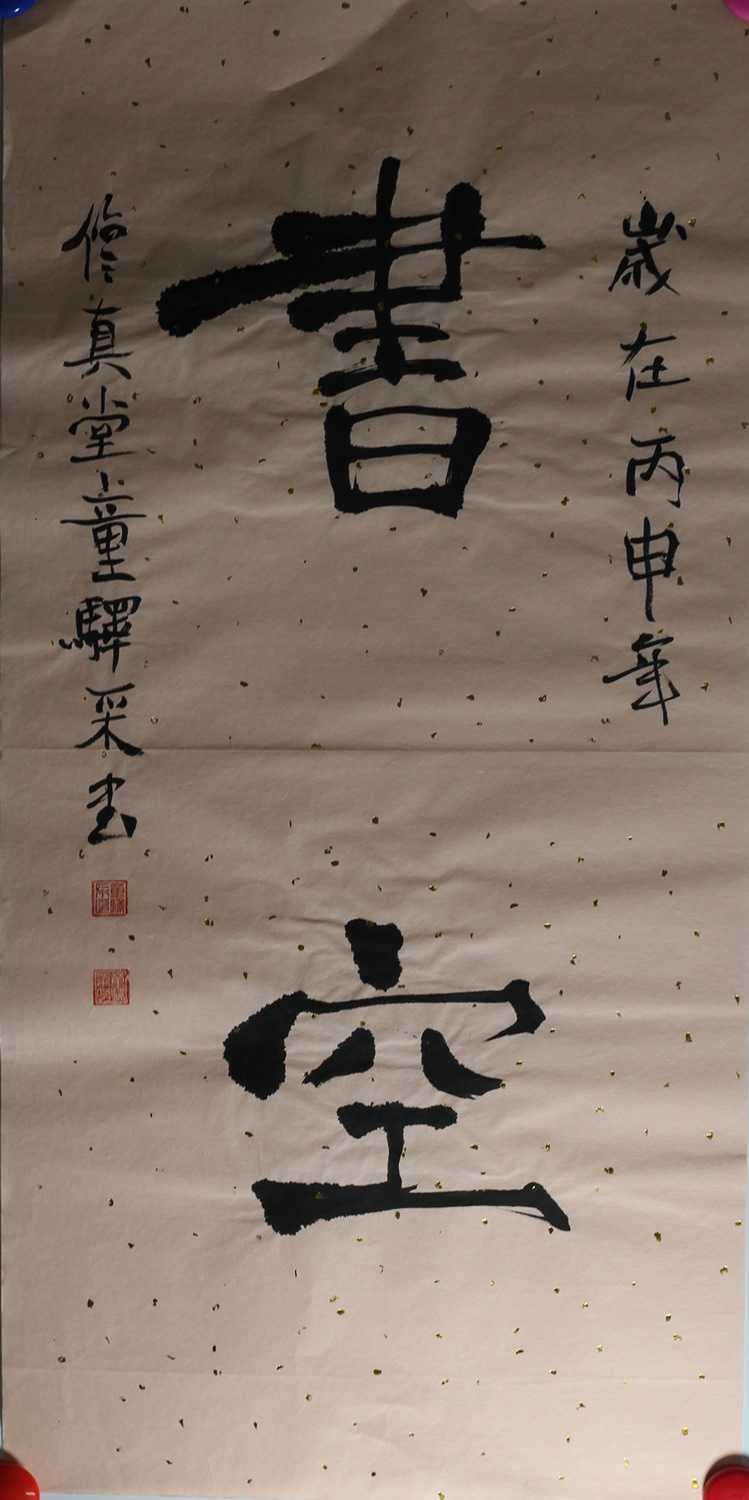 歲在丙申年
書空
修真堂童驛采书